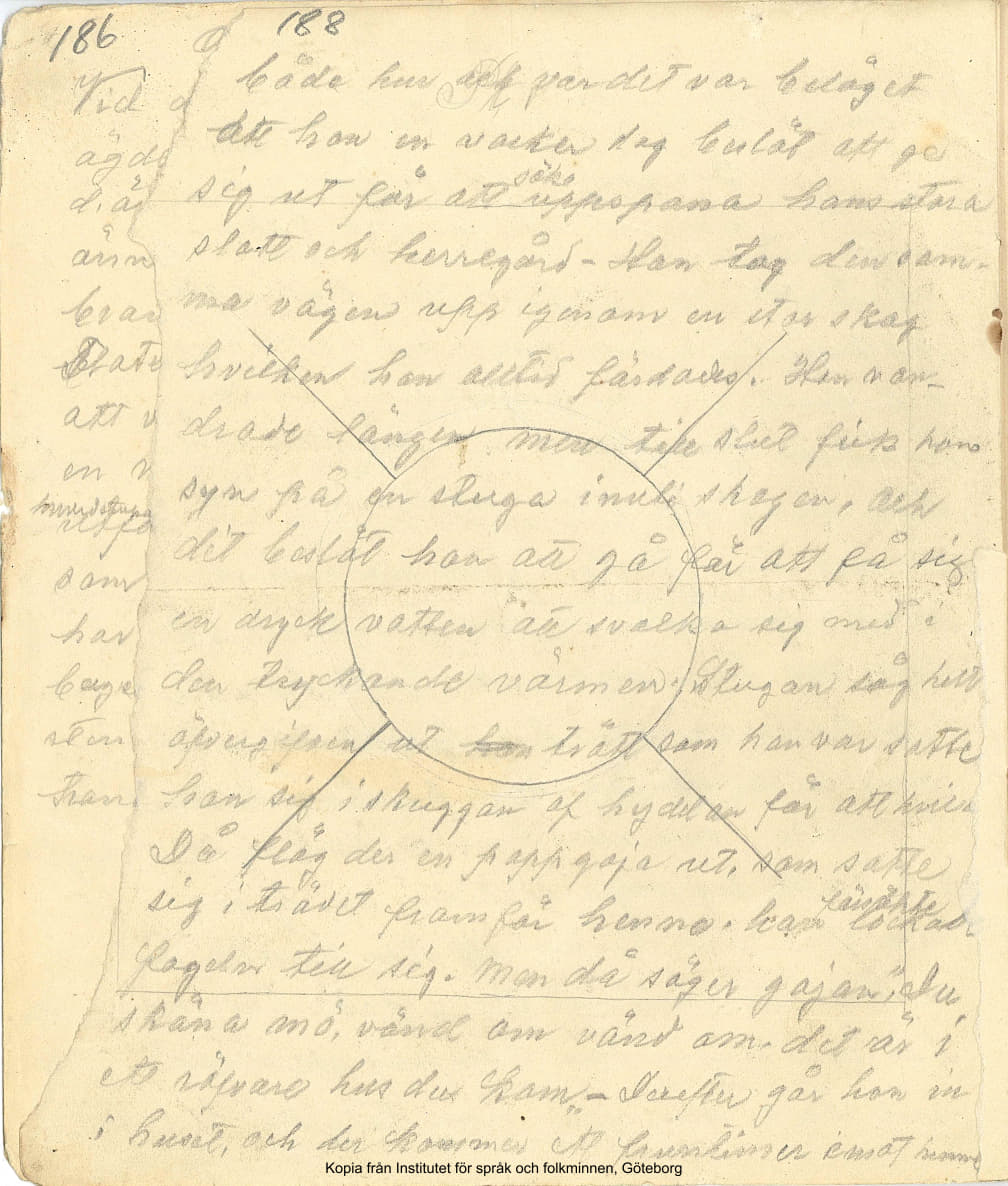 186
188
Vid
ägde
d. äg
änn
bran
State
att v
en v
som
har
sten
fram
både hur och var det var beläget
att hon en vacker dag beslöt att ge
söka
sig ut för att uppspana hans stora
slott och herregård - Hon tog den sam-
ma vägen upp igenom en stor skog
hvilken han alltid färdades. Hon van-
drade länge men till slut fick hon
syn på en stuga inuti skogen, och
dit beslöt hon att gå för att få sig
en dryck vatten att svalka sig med i
den tryckande värmen. Stugan såg helt
öfvergifven ut hon trött som hon var satte
hon sig i skuggan af hyddan för att hvila
Då flög der en pappgoja ut, som satte
sig i trädet framför henne. hon försökte locka
fogeln till sig. Men då säger gojan, "Du
sköna mö, vänd om vänd om. det är i
ett röfvare hus du kom" - Derefter går hon in
i huset, och der kommer ett fruntimer emot henne
Kopia från Institutet för språk och folkminnen, Göteborg